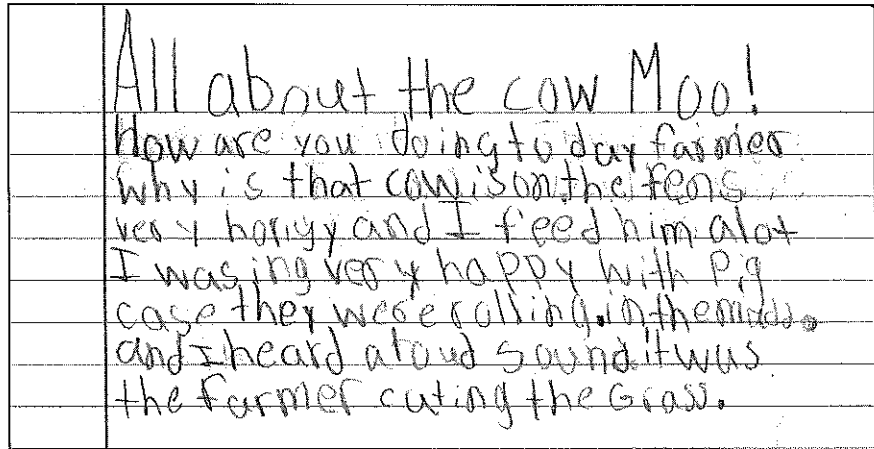 All about the cow Moo!
How are you doing today farmer
why is that cow is on the fens
very horgyy and I feed him alot
I was ing very happy with pig
case they were rolling. in the mudd.
and I heard a loud sound. it was
the farmer cuting the Grass.